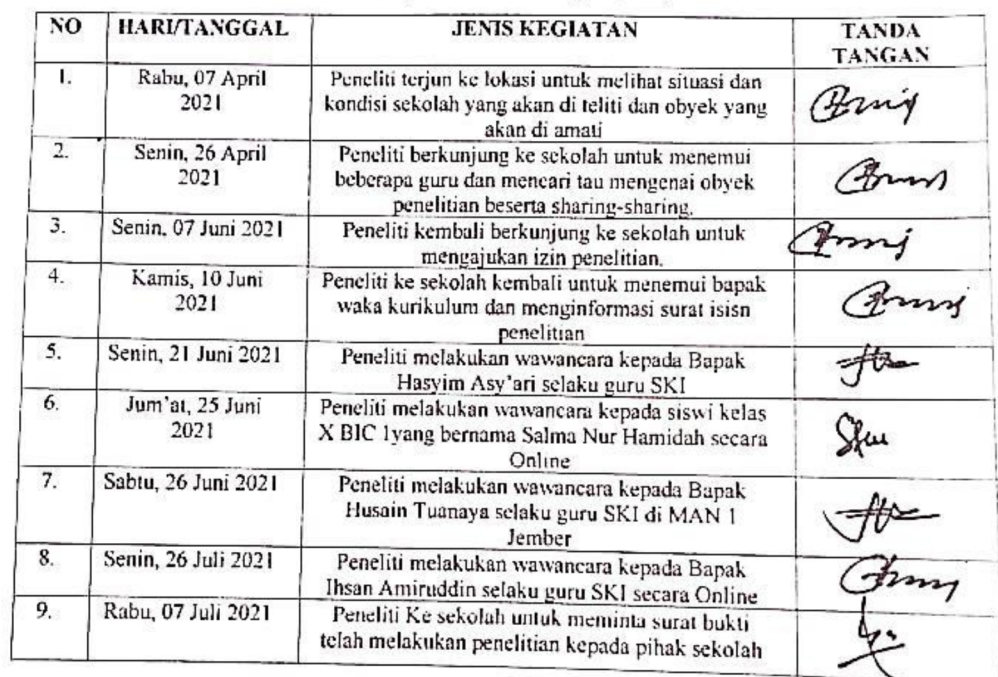 NO HARI/TANGGAL JENIS KEGIATAN TANDA TANGAN
1. Rabu, 07 April 2021 Peneliti terjun ke lokasi untuk melihat situasi dan
kondisi sekolah yang akan di teliti dan obyek yang
akan di amati
2. Senin, 26 April 2021 Peneliti berkunjung ke sekolah untuk menemui
beberapa guru dan mencari tau mengenai obyek
penelitian beserta sharing-sharing.
3. Senin, 07 Juni 2021 Peneliti kembali berkunjung ke sekolah untuk
mengajukan izin penelitian.
4. Kamis, 10 Juni 2021 Peneliti ke sekolah kembali untuk menemui bapak
waka kurikulum dan menginformasi surat isisn
penelitian
5. Senin, 21 Juni 2021 Peneliti melakukan wawancara kepada Bapak
Hasyim Asy'ari selaku guru SKI
6. Jum'at, 25 Juni 2021 Peneliti melakukan wawancara kepada siswi kelas
X BIC 1yang bernama Salma Nur Hamidah secara
Online
7. Sabtu, 26 Juni 2021 Peneliti melakukan wawancara kepada Bapak
Husain Tuanaya selaku guru SKI di MAN 1
Jember
8. Senin, 26 Juli 2021 Peneliti melakukan wawancara kepada Bapak
Ihsan Amiruddin selaku guru SKI secara Online
9. Rabu, 07 Juli 2021 Peneliti Ke sekolah untuk meminta surat bukti
telah melakukan penelitian kepada pihak sekolah